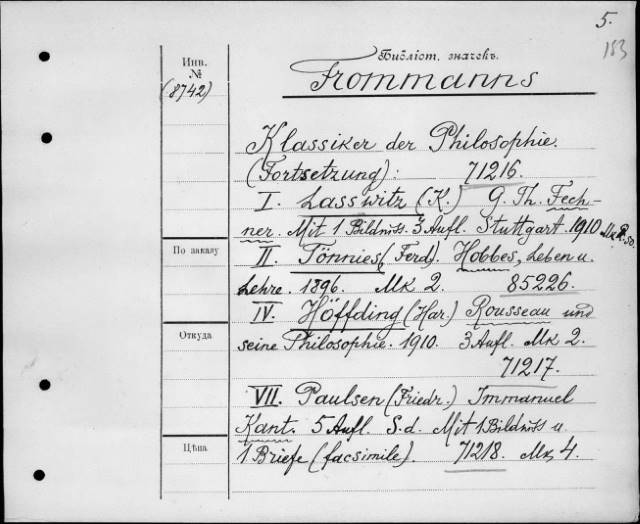 5.
183
Инв.
№
(8742)
Библіот. значекъ.
Frommanns
Klassiker der Philosophie.
(Fortsetzung): 71216.
I. Lasswitz (K.) G. Th. Fech-
ner. Mit 1 Bildniss. 3 Aufl. Stuttgart. 1910
По заказу
II. Tönnies (Ferd). Hobbes, Leben u.
Lehre. 1896. Mk 2. 85226.
IV. Höffding (Har.) Rousseau und
Откуда
seine Philosophie. 1910. 3 Aufl. Mk 2.
71217.
VII. Paulsen (Friedr.) Immanuel
Kant. 5 Aufl. S.d. Mit 1 Bildniss u.
Цѣна
1 Briefe (facsimile). 71218. Mk 4.